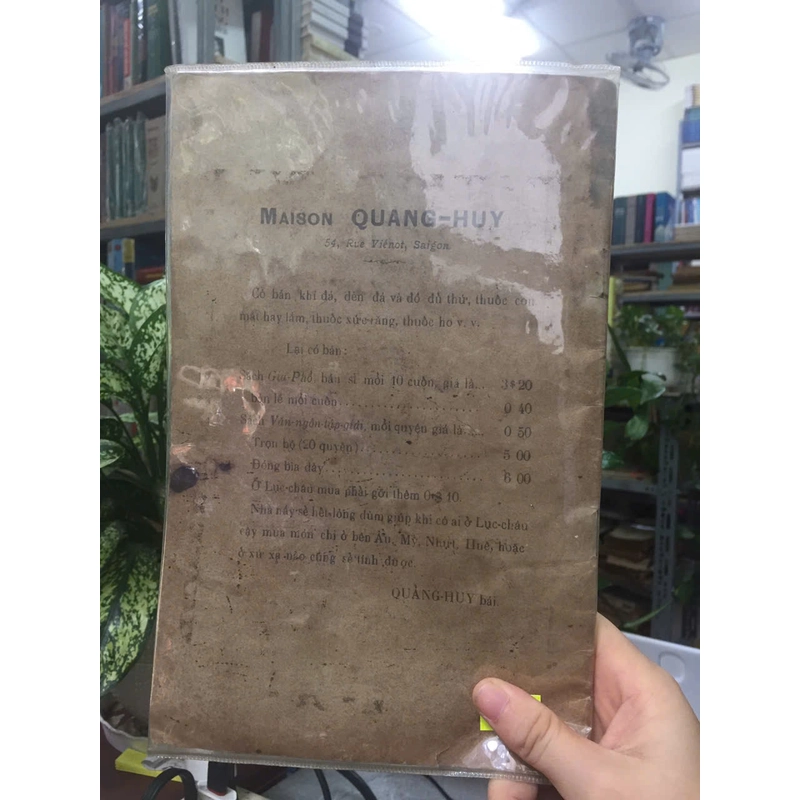 MAISON QUANG-HUY
54, Rue Viénot, Saigon
Có bán khí đá, đèn đá và đồ đủ thứ, thuốc con
mái hay lắm, thuốc xức răng, thuốc ho v. v.
Lại có bán:
Sách Gia-Phổ bán sĩ mỗi 10 cuốn, giá là... 3$20
bán lẻ mỗi cuốn 0 40
Sách Vân-ngân tập-giải, mỗi quyện giá là 0 50
Trọn bộ (20 quyện) 5 00
Đóng bìa dày 6 00
Ở Lục-châu mua phải gởi thêm 0$10.
Nhà nầy sẽ hết lòng dùm giúp khi có ai ở Lục-châu
cậy mua món chi ở bên Âu, Mỹ, Nhựt, Huê, hoặc
ở xứ xa nào cũng sẽ tính được
QUẢNG-HUY bái